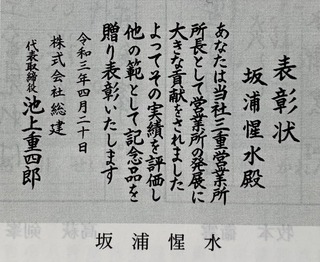 表彰状
坂浦惺水殿
あなたは当社三重営業所
所長として営業所の発展に
大きな貢献をされました
よってその実績を評価し
他の範として記念品を
贈り表彰いたします
令和三年四月二十日
株式会社総建
代表取締役 池上重四郎
坂浦惺水